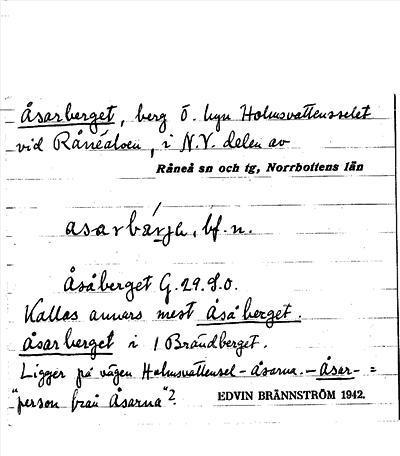 Åsarberget, berg ö. byn Holmsvattensselet
vid Råneälven, i N.V. delen av
Råneå sn och tg, Norrbottens län
asarbárja, bf. n.
Åsåberget G.29.S.O.
Kallas annars mest Åsåberget.
Åsarberget i 1 Brändberget.
Ligger på vägen Holmsvattensel - Åsarna. - Åsar- =
"person från Åsarna"?
EDVIN BRÄNNSTRÖM 1942.